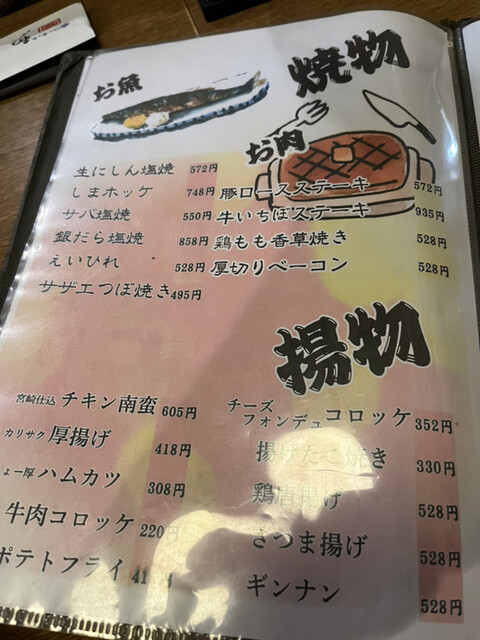 焼物
お魚
生にしん塩焼 572円
しまホッケ 748円
サバ塩焼 550円
銀だら塩焼 858円
えいひれ 528円
サザエつぼ焼き 495円
お肉
豚ロースステーキ 572円
牛いちぼステーキ 935円
鶏もも香草焼き 528円
厚切りベーコン 528円
揚物
宮崎仕込 チキン南蛮 605円
カリサク 厚揚げ 418円
ょー厚 ハムカツ 308円
牛肉コロッケ 220円
ポテトフライ
チーズフォンデュ コロッケ 352円
揚げたこ焼き 330円
鶏唐揚げ 528円
さつま揚げ 528円
ギンナン 528円